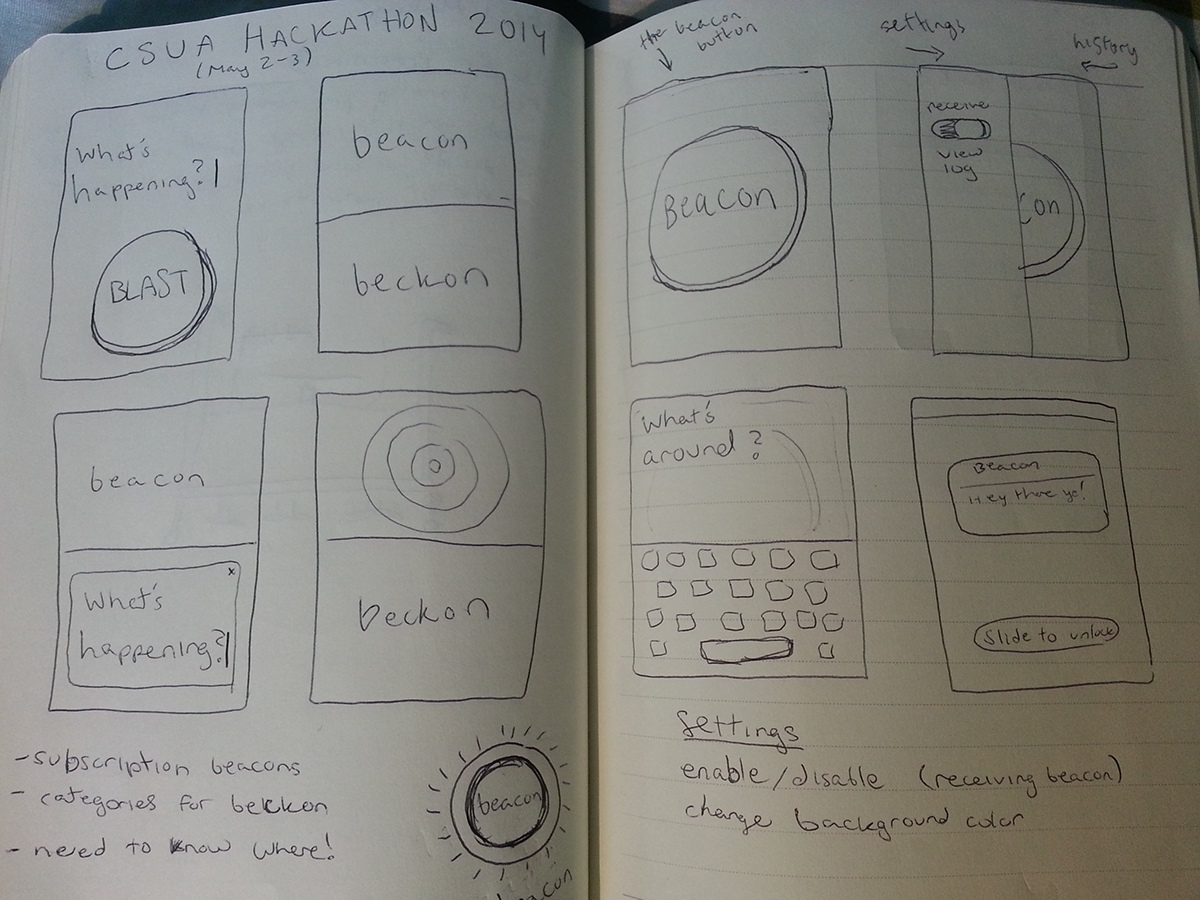 CSUA HACKATHON 2014
(May 2-3)
What's
happening?
BLAST
beacon
beckon
beacon
What's
happening?
x
beckon
- subscription beacons
- categories for beckon
- need to know where!
beacon
beacon
the beacon
button
settings
history
Beacon
receive
view
log
con
What's
around?
Beacon
Hey there yo!
Slide to unlock
Settings
enable/disable (receiving beacon)
change background color